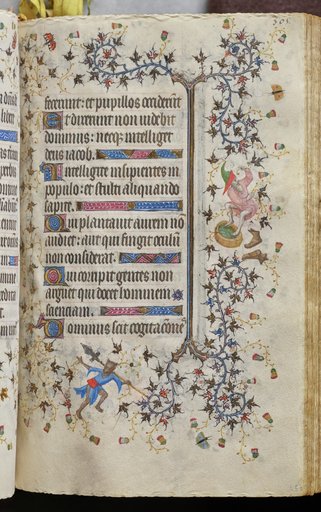 fecerunt: et pupillos occiderũt
Et dixerunt non videbit
dominus: neq3 intelliget
deus iacob.
Intelligite insipientes in
populo: et stulti aliquando
sapite.
Qui plantauit aurem nõ
audiet: aut qui finxit oculũ
non considerat.
Qui corripit gentes non
arguet: qui docet hominem
scienciam.
Dominus scit cogitacõnes